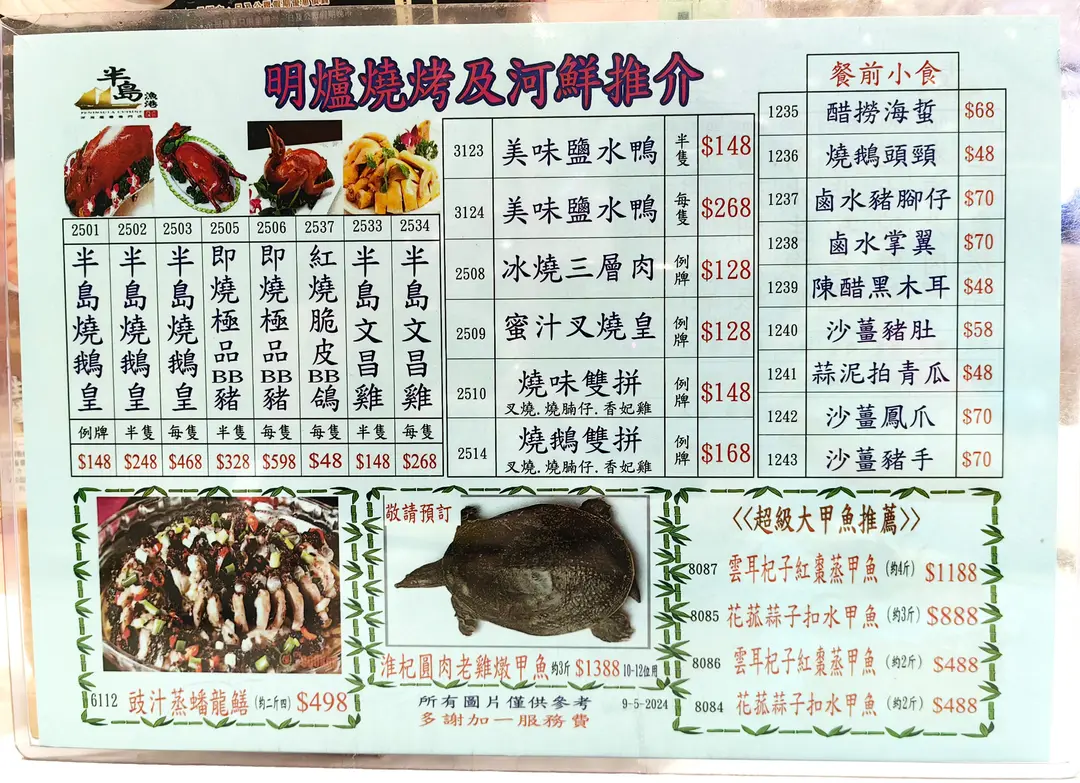 半島漁港
PENINSULA CUISINE
明爐燒烤及河鮮推介
2501 半島燒鵝皇 例牌 $148
2502 半島燒鵝皇 半隻 $248
2503 半島燒鵝皇 每隻 $468
2505 即燒極品BB豬 半隻 $328
2506 即燒極品BB豬 每隻 $598
2537 紅燒脆皮BB鴿 每隻 $48
2533 半島文昌雞 半隻 $148
2534 半島文昌雞 每隻 $268
3123 美味鹽水鴨 半隻 $148
3124 美味鹽水鴨 每隻 $268
2508 冰燒三層肉 例牌 $128
2509 蜜汁叉燒皇 例牌 $128
2510 燒味雙拼 例牌 $148
叉燒.燒腩仔.香妃雞
2514 燒鵝雙拼 例牌 $168
叉燒.燒腩仔.香妃雞
餐前小食
1235 醋撈海蜇 $68
1236 燒鵝頭頸 $48
1237 鹵水豬腳仔 $70
1238 鹵水掌翼 $70
1239 陳醋黑木耳 $48
1240 沙薑豬肚 $58
1241 蒜泥拍青瓜 $48
1242 沙薑鳳爪 $70
1243 沙薑豬手 $70
6112 豉汁蒸蟠龍鱔 (約二斤四) $498
敬請預訂
淮杞圓肉老雞燉甲魚 約3斤 $1388 10-12位用
所有圖片僅供參考 9-5-2024
多謝加一服務費
《超級大甲魚推薦》
8087 雲耳杞子紅棗蒸甲魚 (約4斤) $1188
8085 花菰蒜子扣水甲魚 (約3斤) $888
8086 雲耳杞子紅棗蒸甲魚 (約2斤) $488
8084 花菰蒜子扣水甲魚 (約2斤) $488